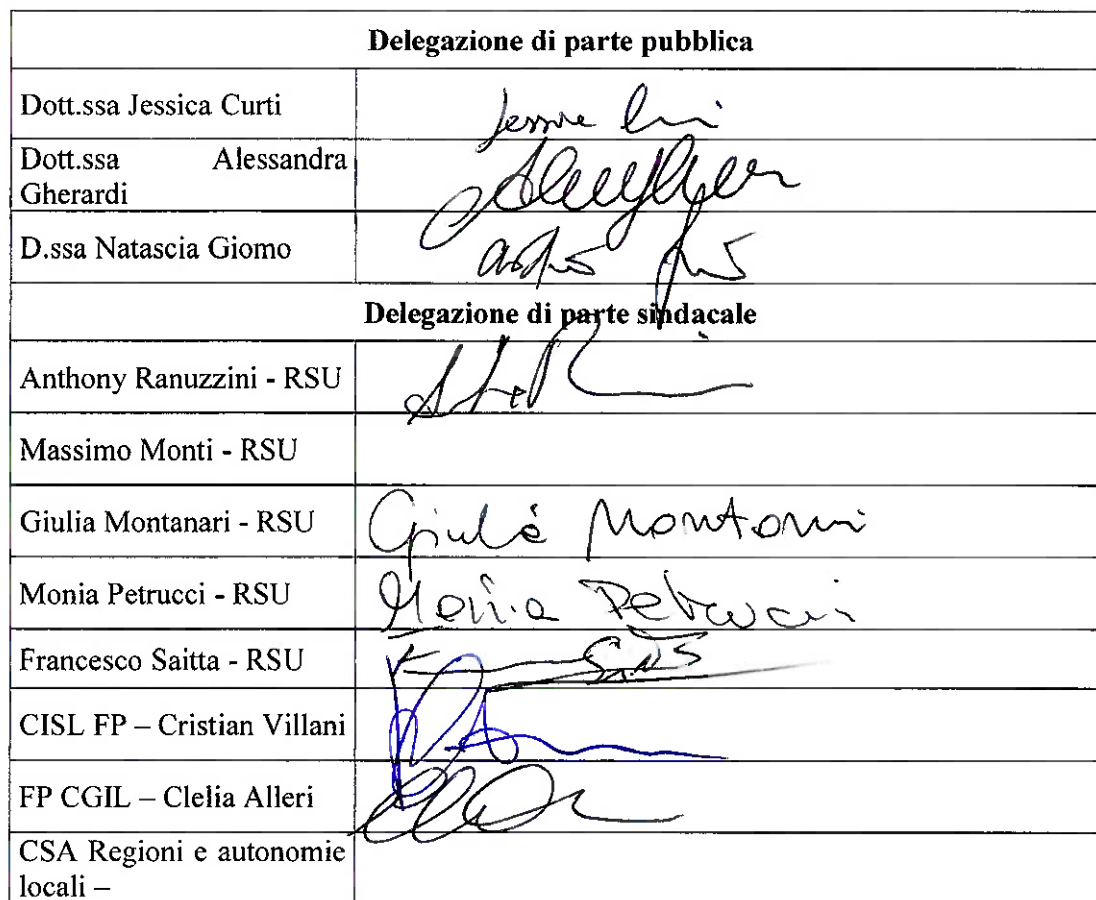 Delegazione di parte pubblica
Dott.ssa Jessica Curti
Dott.ssa Alessandra
Gherardi
D.ssa Natascia Giomo
Delegazione di parte sindacale
Anthony Ranuzzini - RSU
Massimo Monti - RSU
Giulia Montanari - RSU
Giulia Montanari
Monia Petrucci - RSU
Monia Petrucci
Francesco Saitta - RSU
CISL FP – Cristian Villani
FP CGIL – Clelia Alleri
CSA Regioni e autonomie
locali –